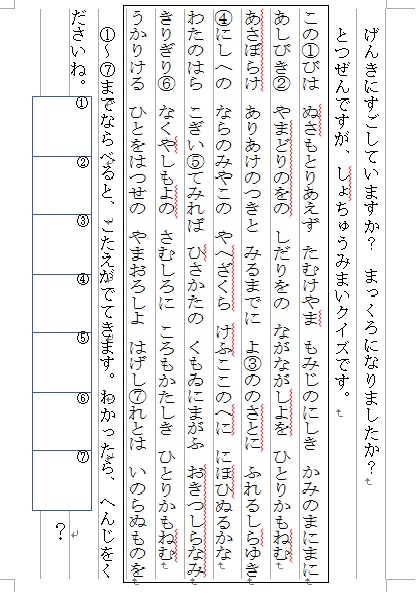 げんきにすごしていますか？　まっくろになりましたか？
とつぜんですが、しょちゅうみまいクイズです。
この①びは　ぬさもとりあえず　たむけやま　もみじのにしき　かみのまにまに
あしびき②　やまどりのをの　しだりをの　ながながしよを　ひとりかもねむ
あさぼらけ　ありあけのつきと　みるまでに　よ③ののさとに　ふれるしらゆき
④にしへの　ならのみやこの　やへざくら　けふここのへに　にほひぬるかな
わたのはら　こぎい⑤てみれば　ひさかたの　くもゐにまがふ　おきつしらなみ
きりぎり⑥　なくやしもよの　さむしろに　ころもかたしき　ひとりかもねむ
うかりける　ひとをはつせの　やまおろしよ　はげし⑦れとは　いのらぬものを
①～⑦までならべると、こたえがでてきます。わかったら、へんじをく
ださいね。
①
②
③
④
⑤
⑥
⑦
？